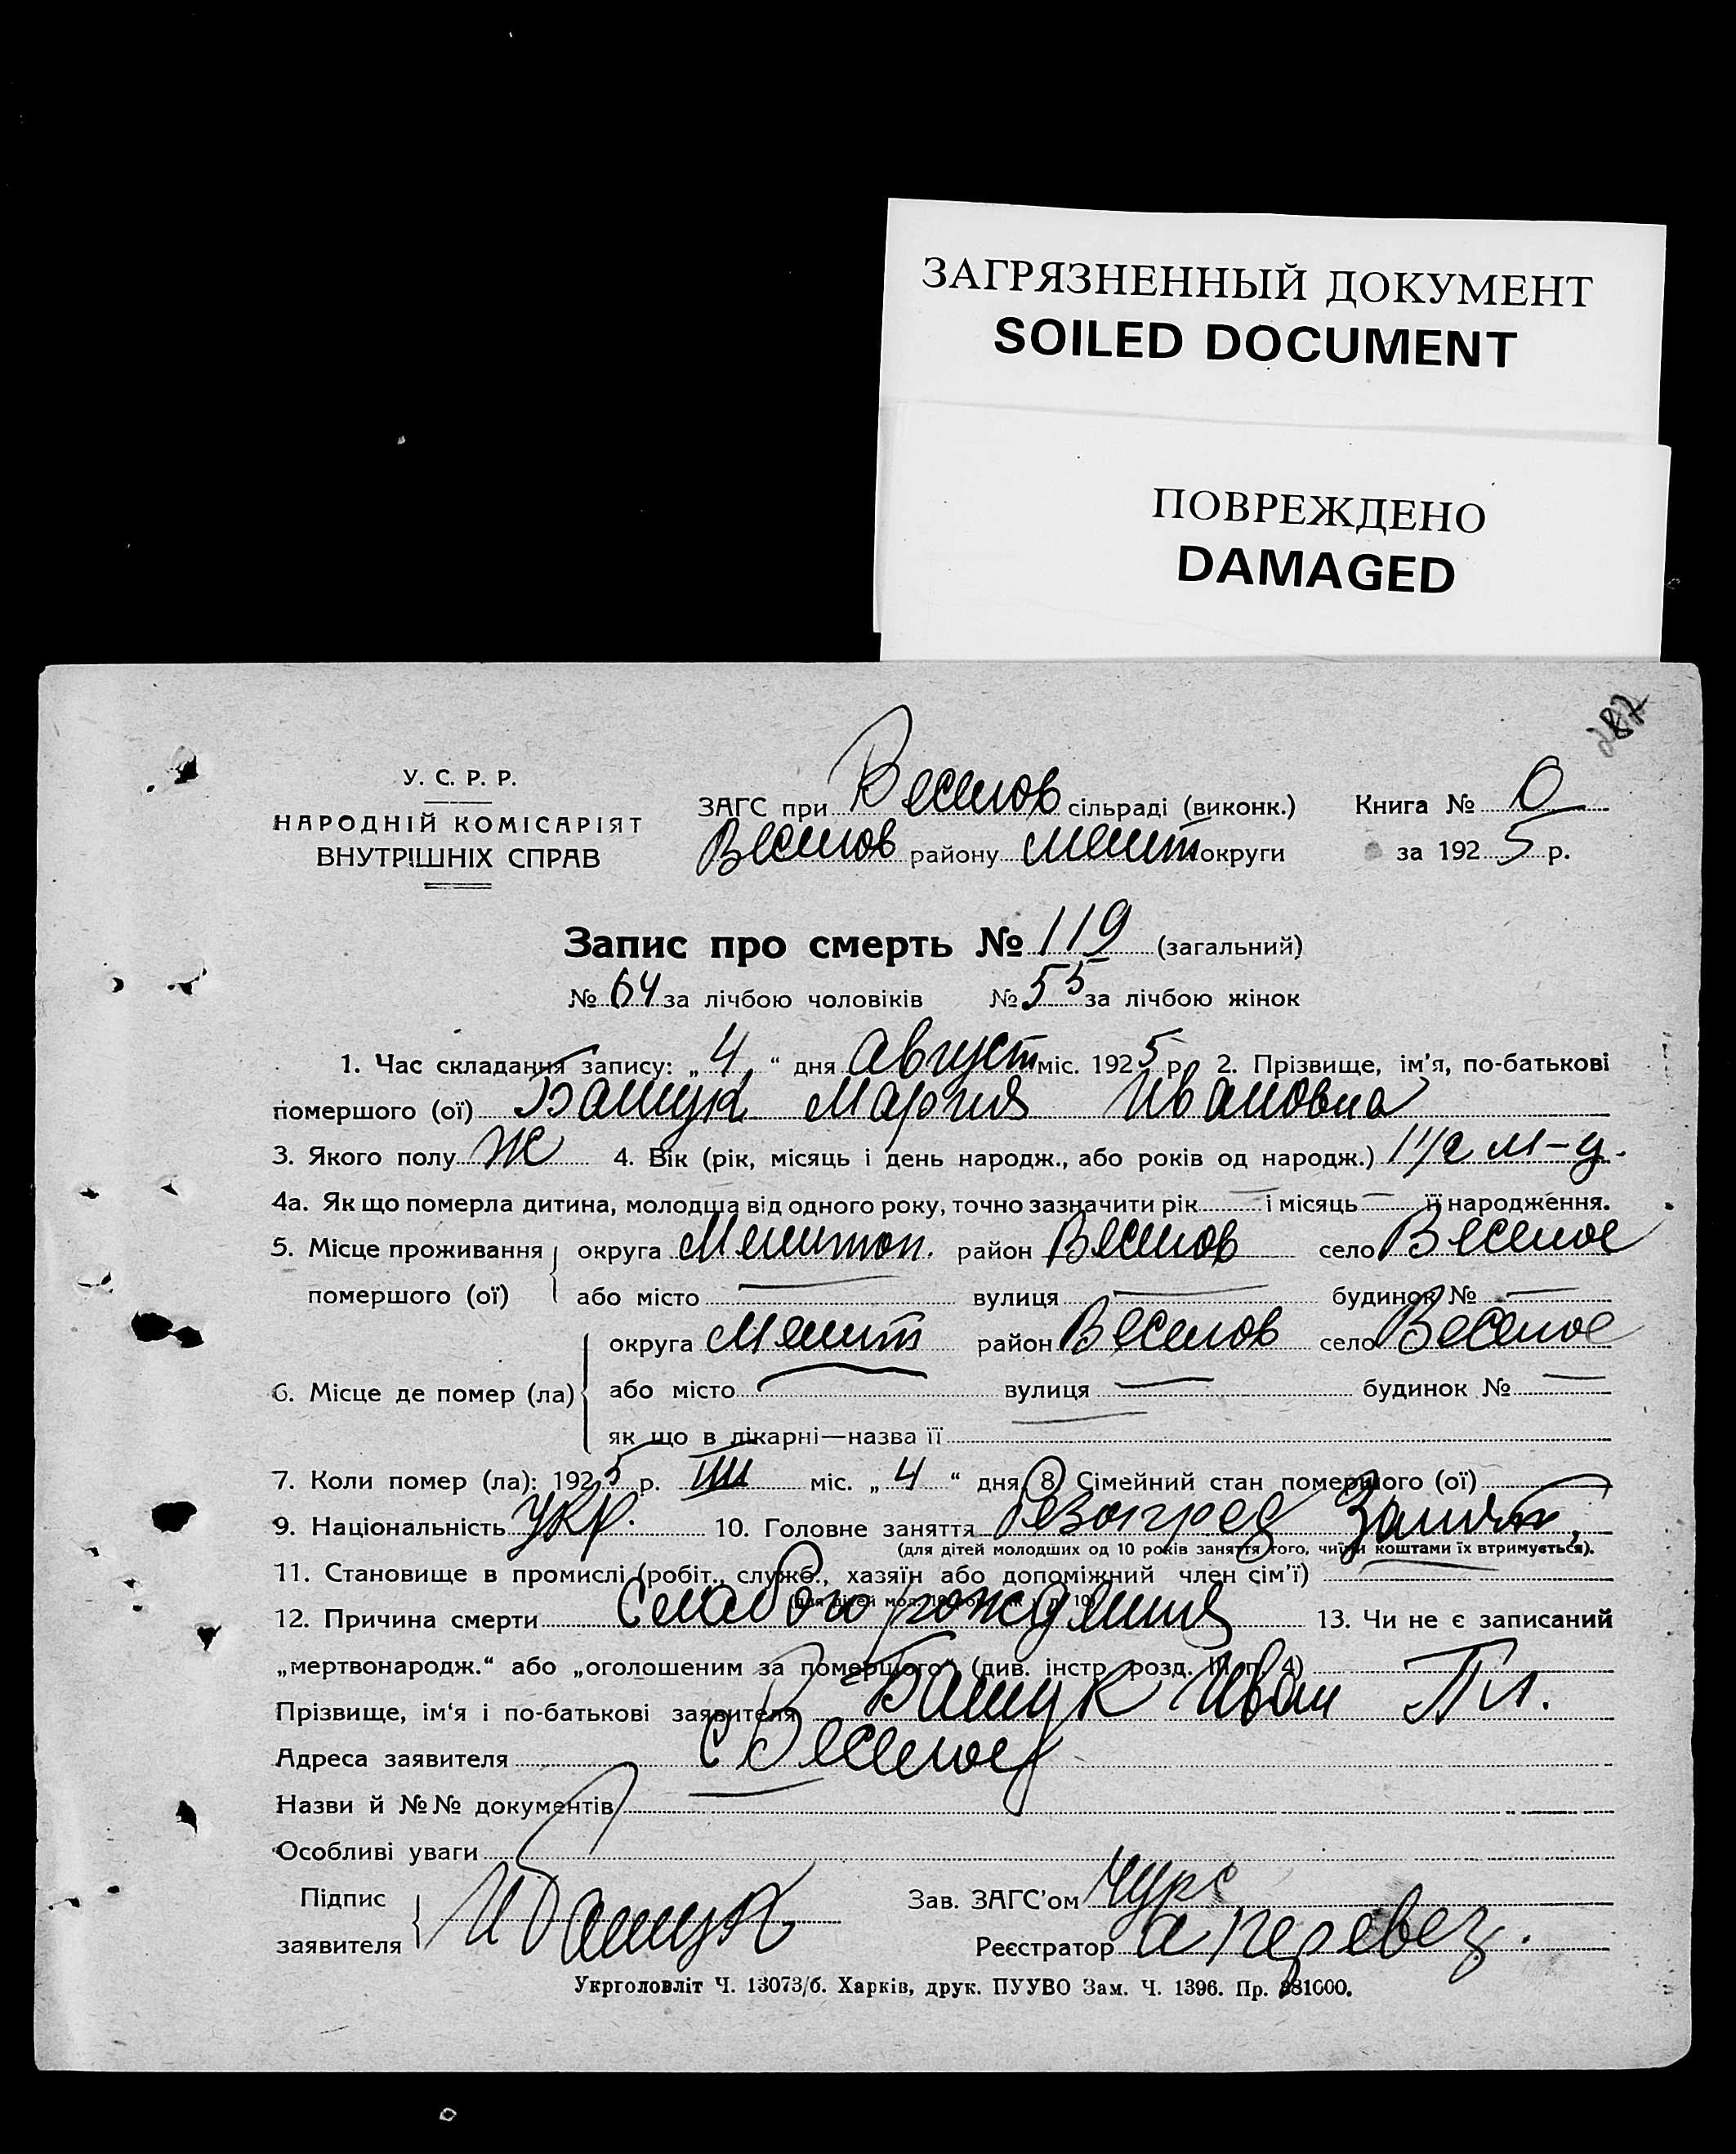 ЗАГРЯЗНЕННЫЙ ДОКУМЕНТ
SOILED DOCUMENT
ПОВРЕЖДЕНО
DAMAGED
287
У. С. Р. Р.
НАРОДНІЙ КОМІСАРІЯТ
ВНУТРІШНІХ СПРАВ
ЗАГС при Веселов сільраді (виконк.)
Веселов району Мелит округи
Книга № О
за 1925 р.
Запис про смерть № 119 (загальний)
№ 64 за лічбою чоловіків № 55 за лічбою жінок
1. Час складання запису: „4" дня Август міс. 1925 р. 2. Прізвище, ім'я, по-батькові
помершого (ої) Башук Мария Ивановна
3. Якого полу Ж 4. Вік (рік, місяць і день народж., або років од народж.) 1 1/2 м-ц.
4а. Як що померла дитина, молодша від одного року, точно зазначити рік — і місяць — її народження.
5. Місце проживання округа Мелитоп. район Веселов село Веселое
помершого (ої) або місто — вулиця — будинок № —
округа Мелит район Веселов село Веселое
6. Місце де помер (ла) або місто — вулиця — будинок № —
як що в лікарні—назва її —
7. Коли помер (ла): 1925 р. VIII міс. „4" дня 8. Сімейний стан помершого (ої) —
9. Національність Укр. 10. Головне заняття
(для дітей молодших од 10 років заняття того, чиїми коштами їх втримується).
11. Становище в промислі (робіт., служб., хазяїн або допоміжний член сім'ї)
12. Причина смерти Слабого рождения 13. Чи не є записаний
„мертвонародж." або „оголошеним за помершого" (див. інстр. розд. III п. 4)
Прізвище, ім'я і по-батькові заявителя Башук Иван Пл.
Адреса заявителя с Веселое
Назви й №№ документів
Особливі уваги
Підпис
заявителя И Башук
Зав. ЗАГС'ом
Реєстратор
Укрголовліт Ч. 13073/б. Харків, друк. ПУУВО Зам. Ч. 1396. Пр. 881000.